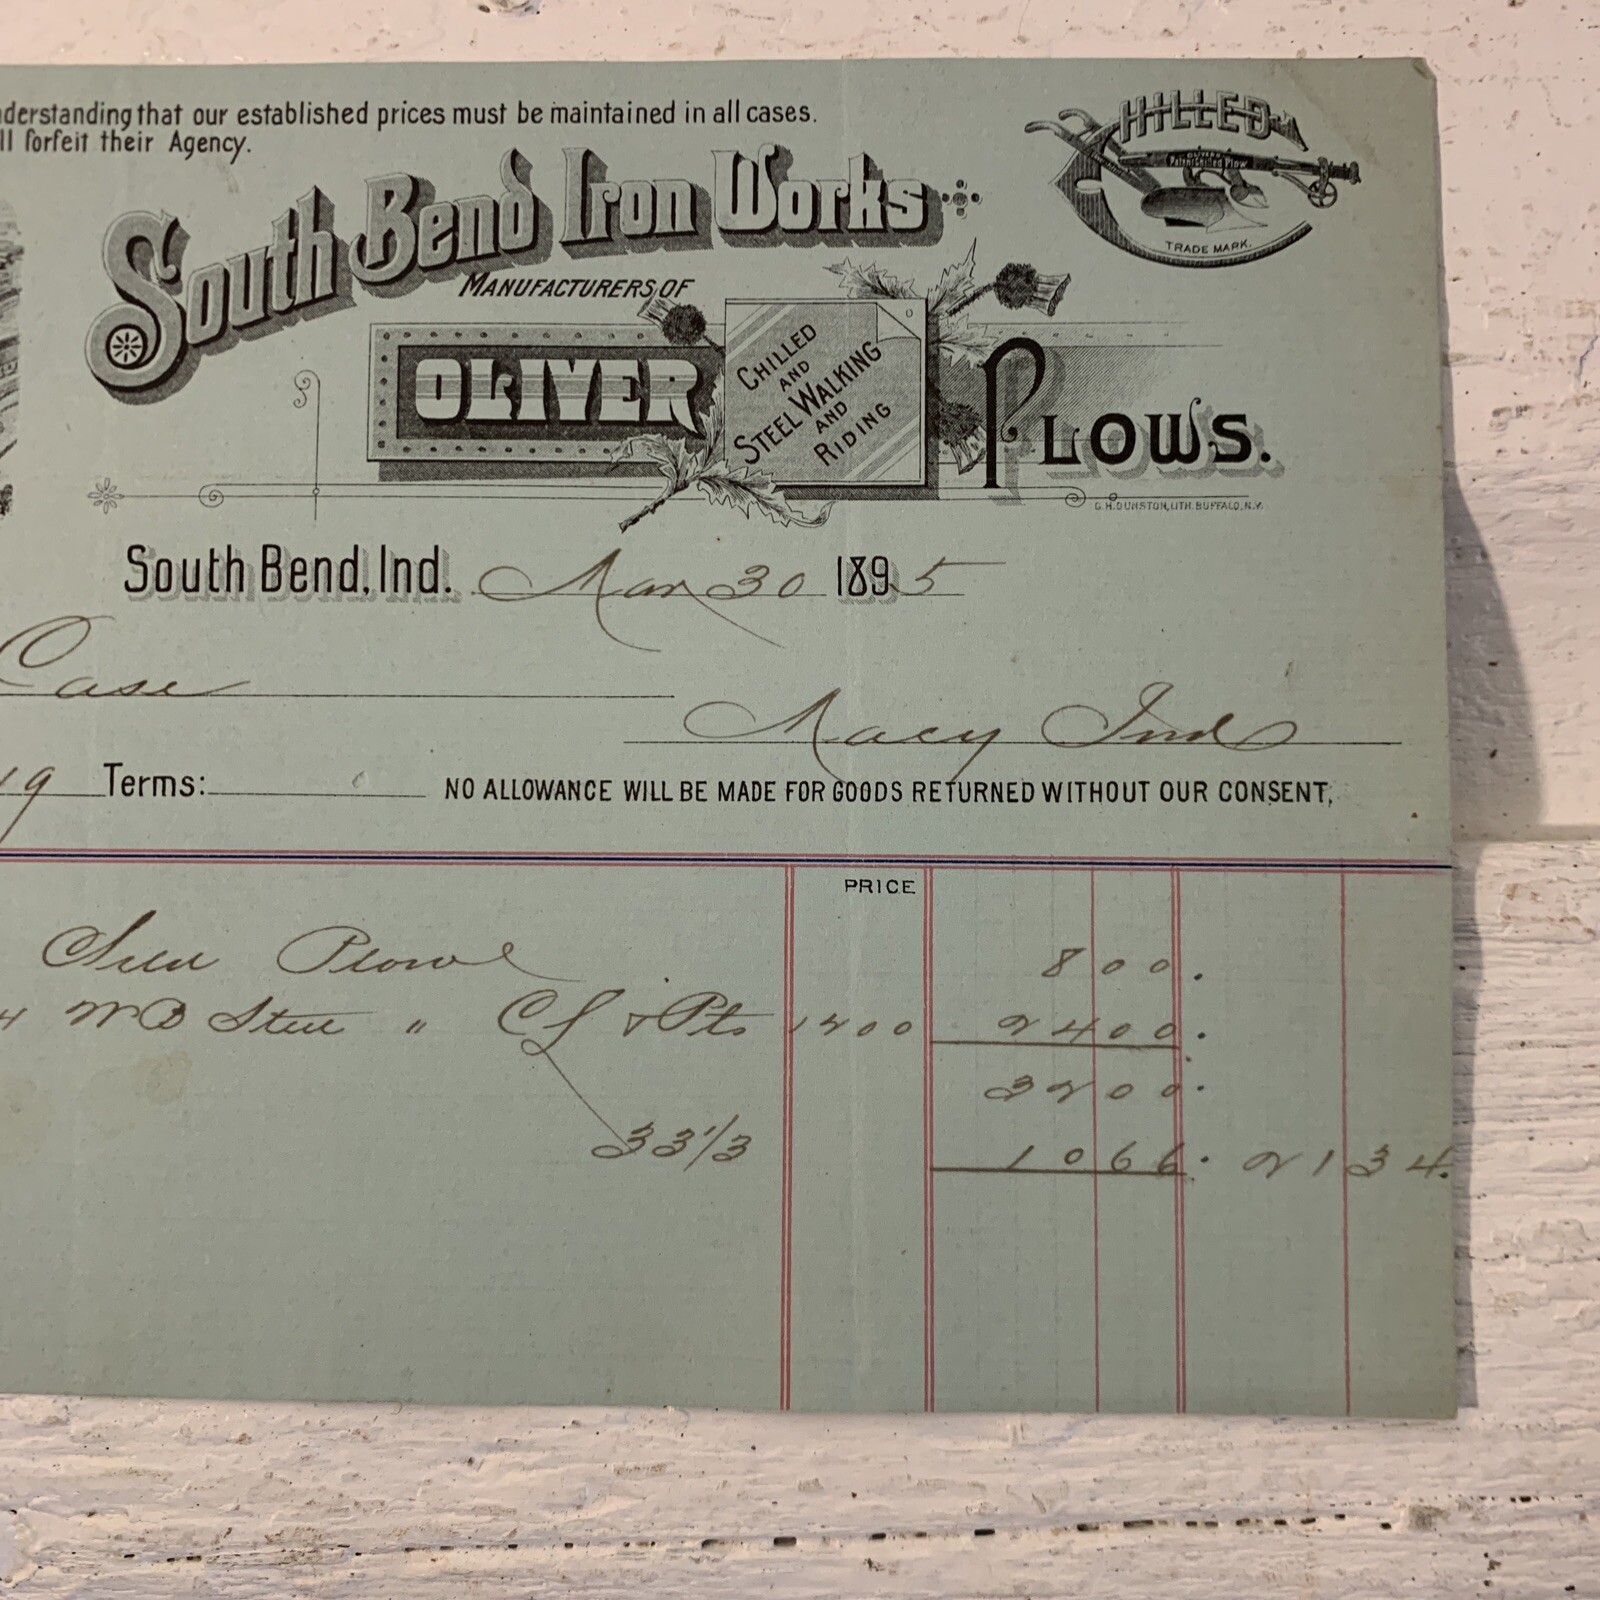 nderstanding that our established prices must be maintained in all cases.
ll forfeit their Agency.
CHILLED
OLIVER
Patent Chilled Plow
TRADE MARK.
South Bend Iron Works
MANUFACTURERS OF
OLIVER
CHILLED
AND
STEEL WALKING
AND
RIDING
PLOWS.
G.H. DUNSTON, LITH. BUFFALO, N.Y.
South Bend, Ind. Mar 30 1895
Case
Macy Ind
19 Terms: NO ALLOWANCE WILL BE MADE FOR GOODS RETURNED WITHOUT OUR CONSENT,
PRICE
Plow 8 00.
4 WB Steel " CJ & Pts 1200 24 00.
32 00.
33 1/3 10 66. 21 34.